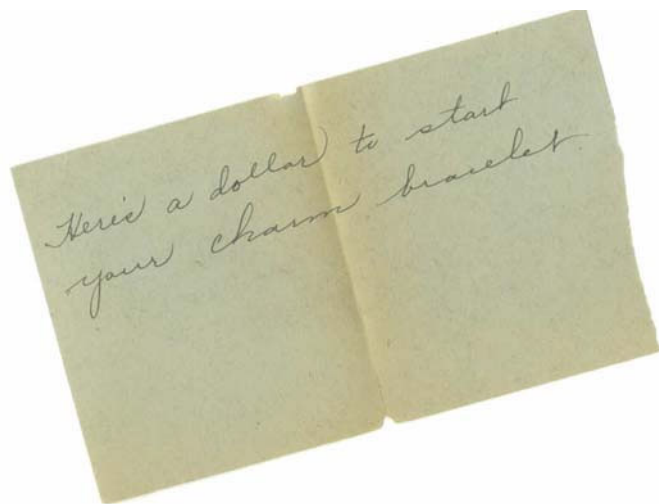 Here's a dollar to start
your charm bracelet.